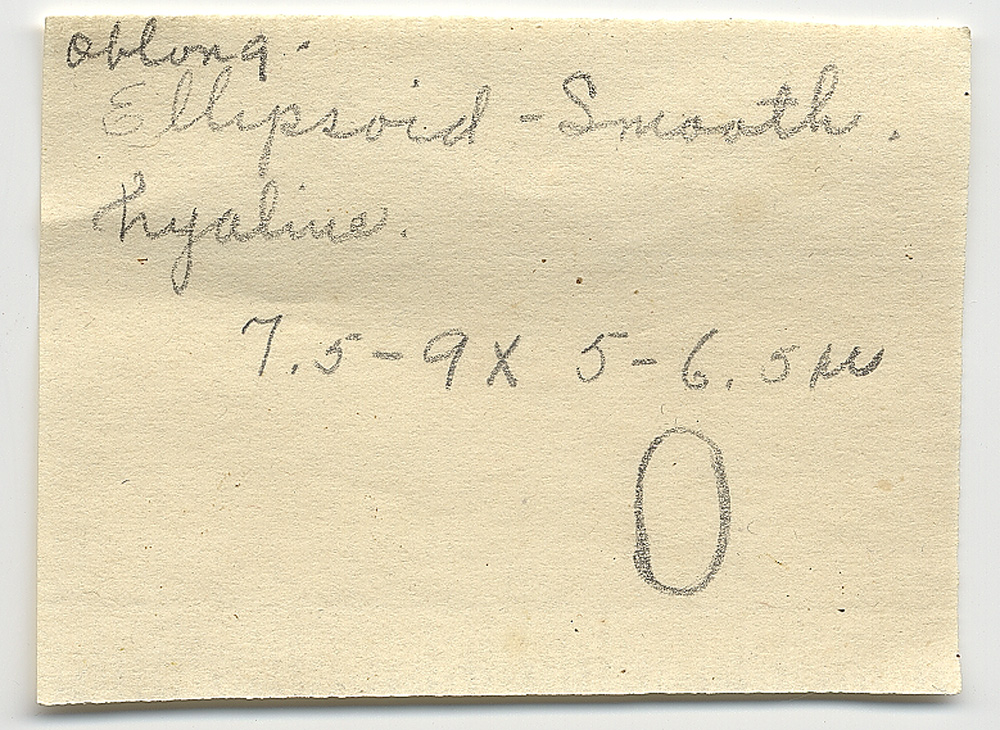 Oblong.
Ellipsoid - Smooth.
hyaline.
7.5-9 X 5-6.5 µ